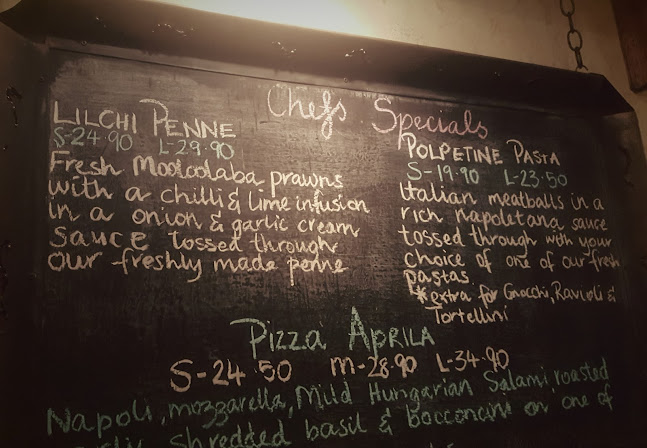 Chefs Specials
LILCHI PENNE
S-24.90 L-29.90
Fresh Mooloolaba prawns
with a chilli & lime infusion
in a onion & garlic cream
sauce tossed through
our freshly made penne
POLPETINE PASTA
S-19.90 L-23.50
Italian meatballs in a
rich napoletana sauce
tossed through with your
choice of one of our fresh
pastas
*extra for Gnocchi, Ravioli &
Tortellini
PIZZA APRILA
S-24.50 M-28.90 L-34.90
Napoli, mozzarella, Mild Hungarian Salami roasted
shredded basil & bocconcini on one of